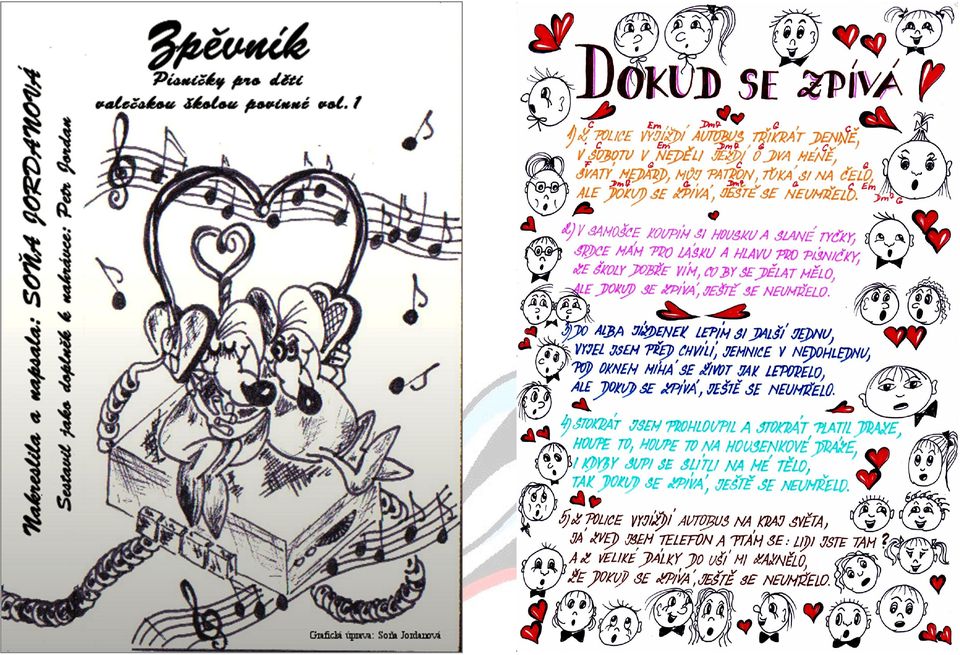 Zpěvník
Písničky pro děti
valečskou školou povinné vol. 1
Nakreslila a napsala: SOŇA JORDANOVÁ
Sestavil jako doplněk k nahrávce: Petr Jordan
Grafická úprava: Soňa Jordanová
DOKUD SE ZPÍVÁ
C Em Dm7 G C
1) Z POLICE VYJÍŽDÍ AUTOBUS TŘIKRÁT DENNĚ,
C Em Dm7 G
V SOBOTU V NEDĚLI JEZDÍ O DVA MÉNĚ,
F G C
SVATÝ MEDARD, MŮJ PATRON, ŤUKÁ SI NA ČELO,
Dm7 G Dm7 G C Em
ALE DOKUD SE ZPÍVÁ, JEŠTĚ SE NEUMŘELO. Dm7 G
2) V SAMOŠCE KOUPÍM SI HOUSKU A SLANÉ TYČKY,
SRDCE MÁM PRO LÁSKU A HLAVU PRO PÍSNIČKY,
ZE ŠKOLY DOBŘE VÍM, CO BY SE DĚLAT MĚLO,
ALE DOKUD SE ZPÍVÁ, JEŠTĚ SE NEUMŘELO.
3) DO ALBA JÍZDENEK LEPÍM SI DALŠÍ JEDNU,
VYJEL JSEM PŘED CHVÍLÍ, JEMNICE V NEDOHLEDNU,
POD OKNEM MÍHÁ SE ŽIVOT JAK LEPORELO,
ALE DOKUD SE ZPÍVÁ, JEŠTĚ SE NEUMŘELO.
4) STOKRÁT JSEM PROHLOUPIL A STOKRÁT PLATIL DRAZE,
HOUPE TO, HOUPE TO NA HOUSENKOVÉ DRÁZE,
I KDYBY SUPI SE SLÍTLI NA MÉ TĚLO,
TAK DOKUD SE ZPÍVÁ, JEŠTĚ SE NEUMŘELO.
5) Z POLICE VYJÍŽDÍ AUTOBUS NA KRAJ SVĚTA,
JÁ ZVED JSEM TELEFON A PTÁM SE: LIDI JSTE TAM?
A Z VELIKÉ DÁLKY DO UŠÍ MI ZAZNĚLO,
ŽE DOKUD SE ZPÍVÁ, JEŠTĚ SE NEUMŘELO.